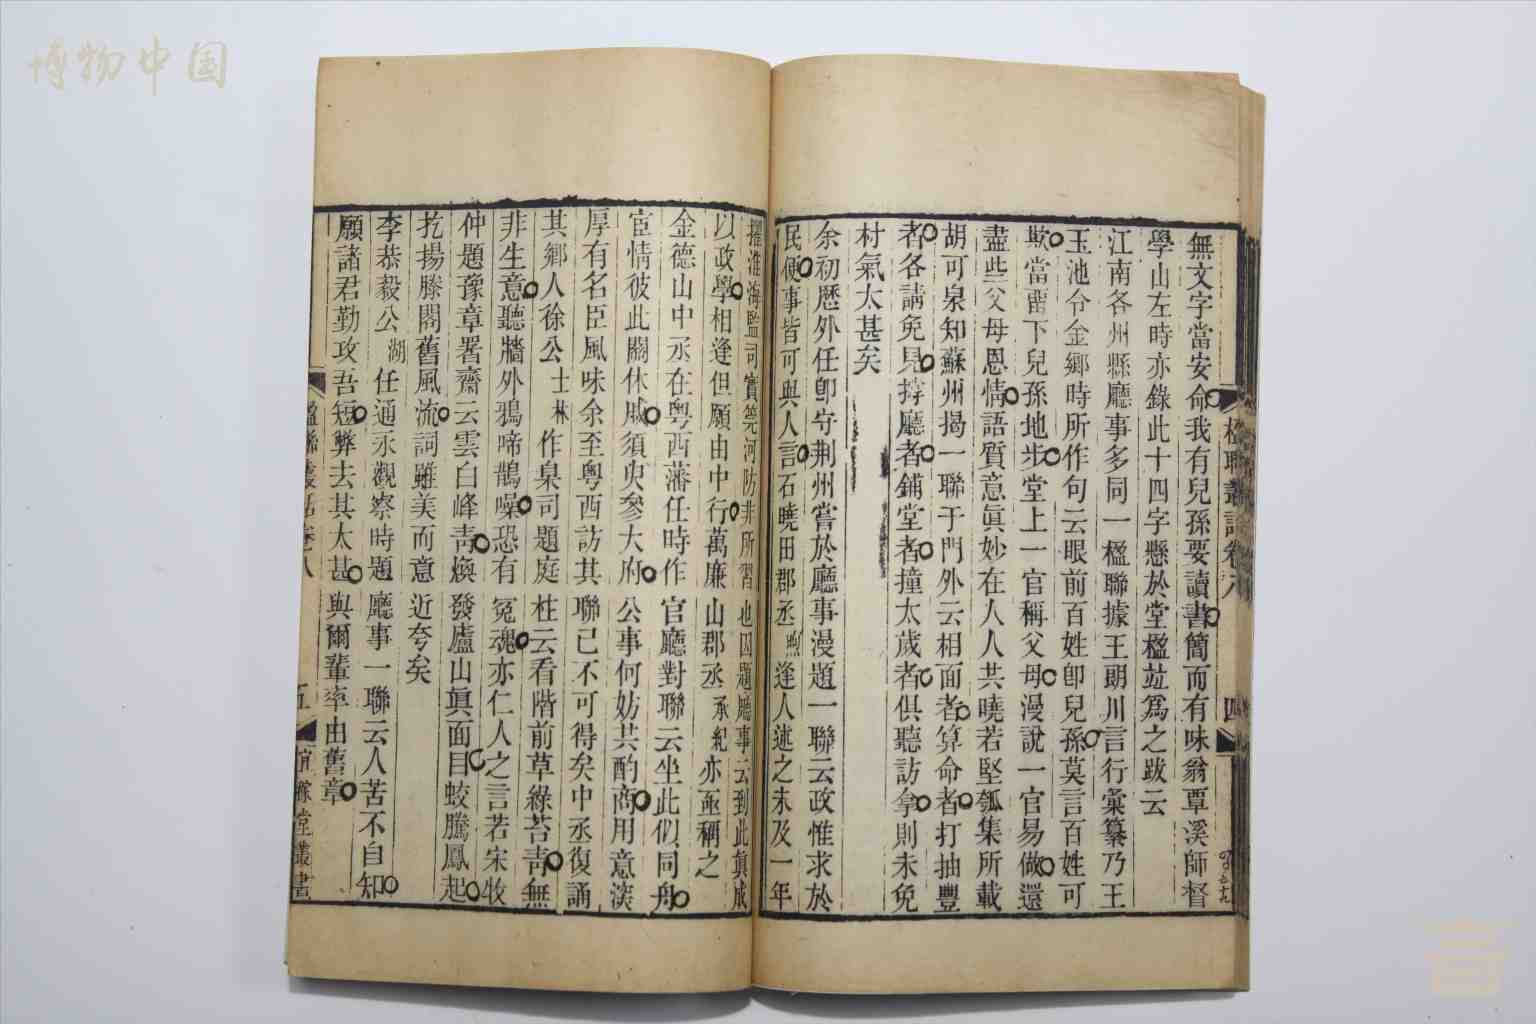 博物中国
楹聯叢話卷八
四
無文字當安命我有兒孫要讀書簡而有味翁覃溪師督
學山左時亦錄此十四字懸於堂楹竝爲之跋云
江南各州縣廳事多同一楹聯據王朗川言行彙纂乃王
玉池令金鄉時所作句云眼前百姓卽兒孫莫言百姓可
欺當畱下兒孫地步堂上一官稱父母漫說一官易做還
盡些父母恩情語質意眞妙在人人共曉若堅瓠集所載
胡可泉知蘇州揭一聯于門外云相面者算命者打抽豐
者各請免見撐廳者鋪堂者撞太歲者俱聽訪拿則未免
村氣太甚矣
余初歷外任卽守荆州嘗於廳事漫題一聯云政惟求於
民便事皆可與人言石曉田郡丞煦逢人述之未及一年
擢淮海監司實筦河防非所習也因題廳事云到此眞成
以政學相逢但願由中行萬廉山郡丞承紀亦亟稱之
金德山中丞在粵西藩任時作官廳對聯云坐此似同舟
宦情彼此關休戚須臾參大府公事何妨共酌商用意淡
厚有名臣風味余至粵西訪其聯已不可得矣中丞復誦
其鄉人徐公士林作臬司題庭柱云看階前草綠苔靑無
非生意聽牆外鴉啼鵲噪恐有冤魂亦仁人之言若宋牧
仲題豫章署齋云雲白峰靑煥發廬山眞面目蛟騰鳳起
扢揚滕閣舊風流詞雖美而意近夸矣
李恭毅公湖任通永觀察時題廳事一聯云人苦不自知
願諸君勤攻吾短弊去其太甚與爾輩率由舊章
楹聯叢話卷八
五